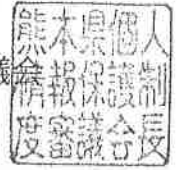 議会
熊本県個人
情報保護制
度審議会長